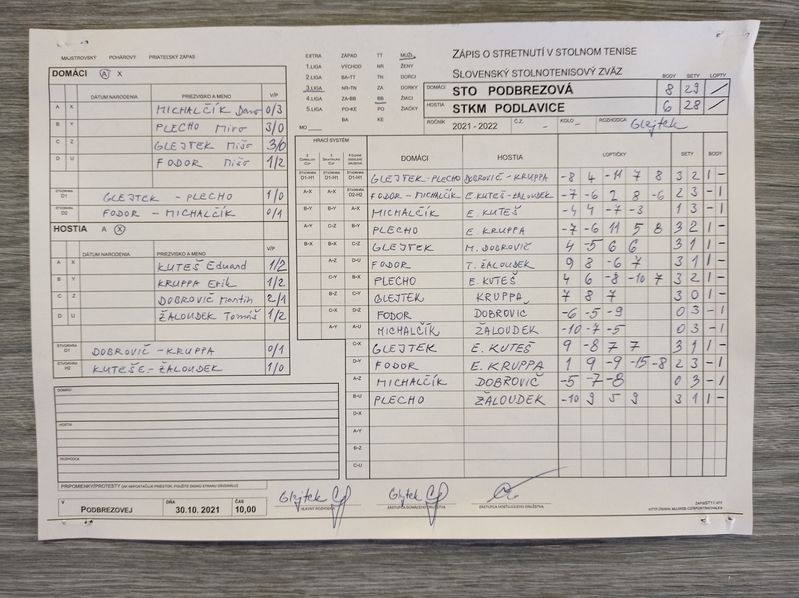 MAJSTROVSKÝ POHÁROVÝ PRIATEĽSKÝ ZÁPAS
EXTRA ZÁPAD TT MUŽI
1.LIGA VÝCHOD NR ŽENY
2.LIGA BA-TT TN DORCI
3.LIGA NR-TN ZA DORKY
4.LIGA ZA-BB BB ŽIACI
5.LIGA PO-KE PO ŽIAČKY
BA KE
MO
ZÁPIS O STRETNUTÍ V STOLNOM TENISE
SLOVENSKÝ STOLNOTENISOVÝ ZVÄZ
BODY SETY LOPTY
DOMÁCI STO PODBREZOVÁ 8 29 /
HOSTIA STKM PODLAVICE 6 28 /
ROČNÍK 2021 - 2022 Č.Z. - KOLO - ROZHODCA Glejtek
DOMÁCI A X
DÁTUM NARODENIA PRIEZVISKO A MENO V/P
A X MICHALČÍK Dano 0/3
B Y PLECHO Miro 3/0
C Z GLEJTEK Mišo 3/0
D U FODOR Mišo 1/2
ŠTVORHRA D1 GLEJTEK - PLECHO 1/0
ŠTVORHRA D2 FODOR - MICHALČÍK 0/1
HOSTIA A X
DÁTUM NARODENIA PRIEZVISKO A MENO V/P
A X KUTEŠ Eduard 1/2
B Y KRUPPA Erik 1/2
C Z DOBROVIČ Martin 2/1
D U ŽALOUDEK Tomáš 1/2
ŠTVORHRA D1 DOBROVIČ - KRUPPA 0/1
ŠTVORHRA H2 KUTEŠ E. - ŽALOUDEK 1/0
DOMÁCI
HOSTIA
ROZHODCA
PRIPOMIENKY/PROTESTY (AK NEPOSTAČUJE PRIESTOR, POUŽITE ZADNÚ STRANU ORIGINÁLU)
HRACÍ SYSTÉM
DOMÁCI HOSTIA LOPTIČKY SETY BODY
D1-H1 D1-H1 D1-H1 GLEJTEK - PLECHO DOBROVIČ - KRUPPA -8 4 -11 7 8 3 2 1 -
A-X A-X D2-H2 FODOR - MICHALČÍK E. KUTEŠ - ŽALOUDEK -7 -6 2 8 -6 2 3 - 1
B-Y B-Y A-X MICHALČÍK E. KUTEŠ -4 4 -7 -3 1 3 - 1
A-Y C-Z B-Y PLECHO E. KRUPPA -7 -6 11 5 8 3 2 1 -
B-X B-X C-Z GLEJTEK M. DOBROVIČ 4 -5 6 6 3 1 1 -
A-Z D-U FODOR T. ŽALOUDEK 9 8 -6 7 3 1 1 -
C-Y B-X PLECHO E. KUTEŠ 4 6 -8 -10 7 3 2 1 -
B-Z C-Y GLEJTEK KRUPPA 7 8 7 3 0 1 -
C-X D-Z FODOR DOBROVIČ -6 -5 -9 0 3 - 1
A-Y A-U MICHALČÍK ŽALOUDEK -10 -7 -5 0 3 - 1
C-X GLEJTEK E. KUTEŠ 9 -8 7 7 3 1 1 -
D-Y FODOR E. KRUPPA 1 9 -9 -15 -8 2 3 - 1
A-Z MICHALČÍK DOBROVIČ -5 -7 -8 0 3 - 1
B-U PLECHO ŽALOUDEK -10 9 5 9 3 1 1 -
D-X
A-Y
B-Z
C-U
V PODBREZOVEJ DŇA 30.10.2021 ČAS 10,00
Glejtek Glejtek
HLAVNÝ ROZHODCA ZÁSTUPCA DOMÁCEHO DRUŽSTVA ZÁSTUPCA HOSŤUJÚCEHO DRUŽSTVA